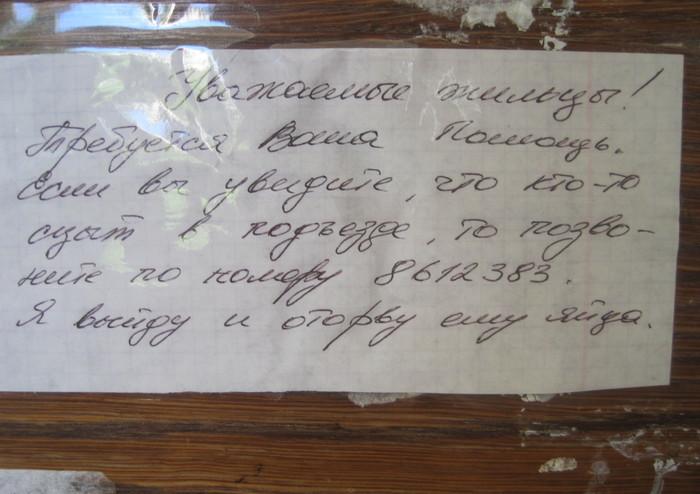 Уважаемые жильцы!
Требуется Ваша Помощь.
Если вы увидите, что кто-то
сцыт в подъезде, то позво-
ните по номеру 8612383.
Я выйду и оторву ему яйца.